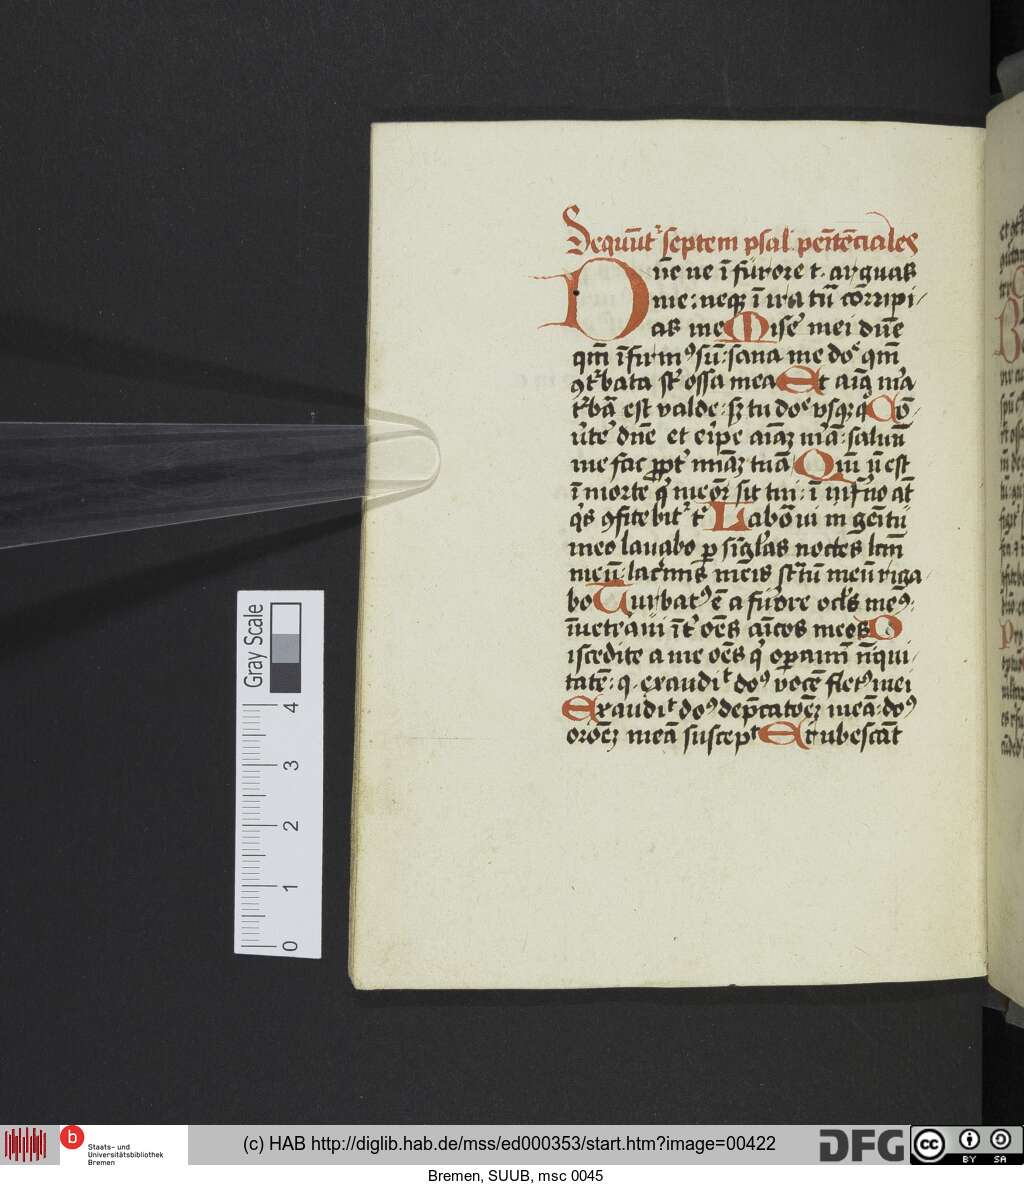 Sequūt᷒ septem psal peītēciales
Dn̄e ne ī furore t. arguas
me : neqꝫ ī ira tū cōrripi
as me Mise᷒ mei dn̄e
qm̄ īfirmꝰ sū : sana me do᷒ qm̄
ꝯt᷒bata st᷒ ossa mea Et aīa m̄a
t᷒bā est valde : sꝫ tu do᷒ vsqꝫ qͦ Cō
u᷒te᷒ dn̄e et eipe aīaꝫ m̄ā : saluū
me fac ꝓpt᷒ mīaꝫ tuā Qm̄ n̄ est
ī morte q͛ meor᷒ sit tui : ī inf᷒no at̄
q͛s ꝯfitebit᷒ t᷒ Laborͣui in gēitu
meo lauabo ꝑ sīglas noctes lectm̄
meū : lac᷒mis meis st᷒tū meū riga
bo Turbatꝰ ē a furore ocl᷒s meꝰ :
īueteraui īt᷒ oēs aīcos meos D
iscedite a me oēs q͛ oꝑamī īiqui
tatē : q. exaudiᵗ doꝰ vocē fletꝰ mei
Exaudiᵗ doꝰ dep̄catoēꝫ meā : doꝰ
oroēꝫ meā suscepᵗ Erubescāt
Gray Scale
4
3
2
1
0
b
Staats- und
Universitätsbibliothek
Bremen
(c) HAB http://diglib.hab.de/mss/ed000353/start.htm?image=00422
DFG
cc BY SA
Bremen, SUUB, msc 0045